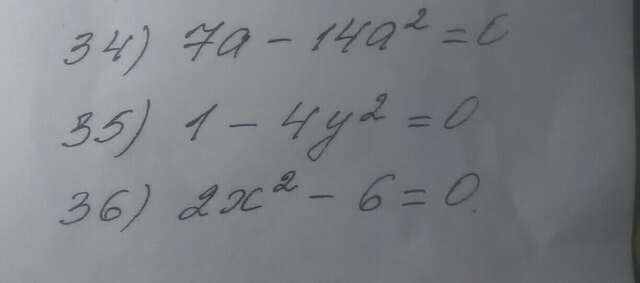 34) 7a - 14a² = 0
35) 1 - 4y² = 0
36) 2x² - 6 = 0.